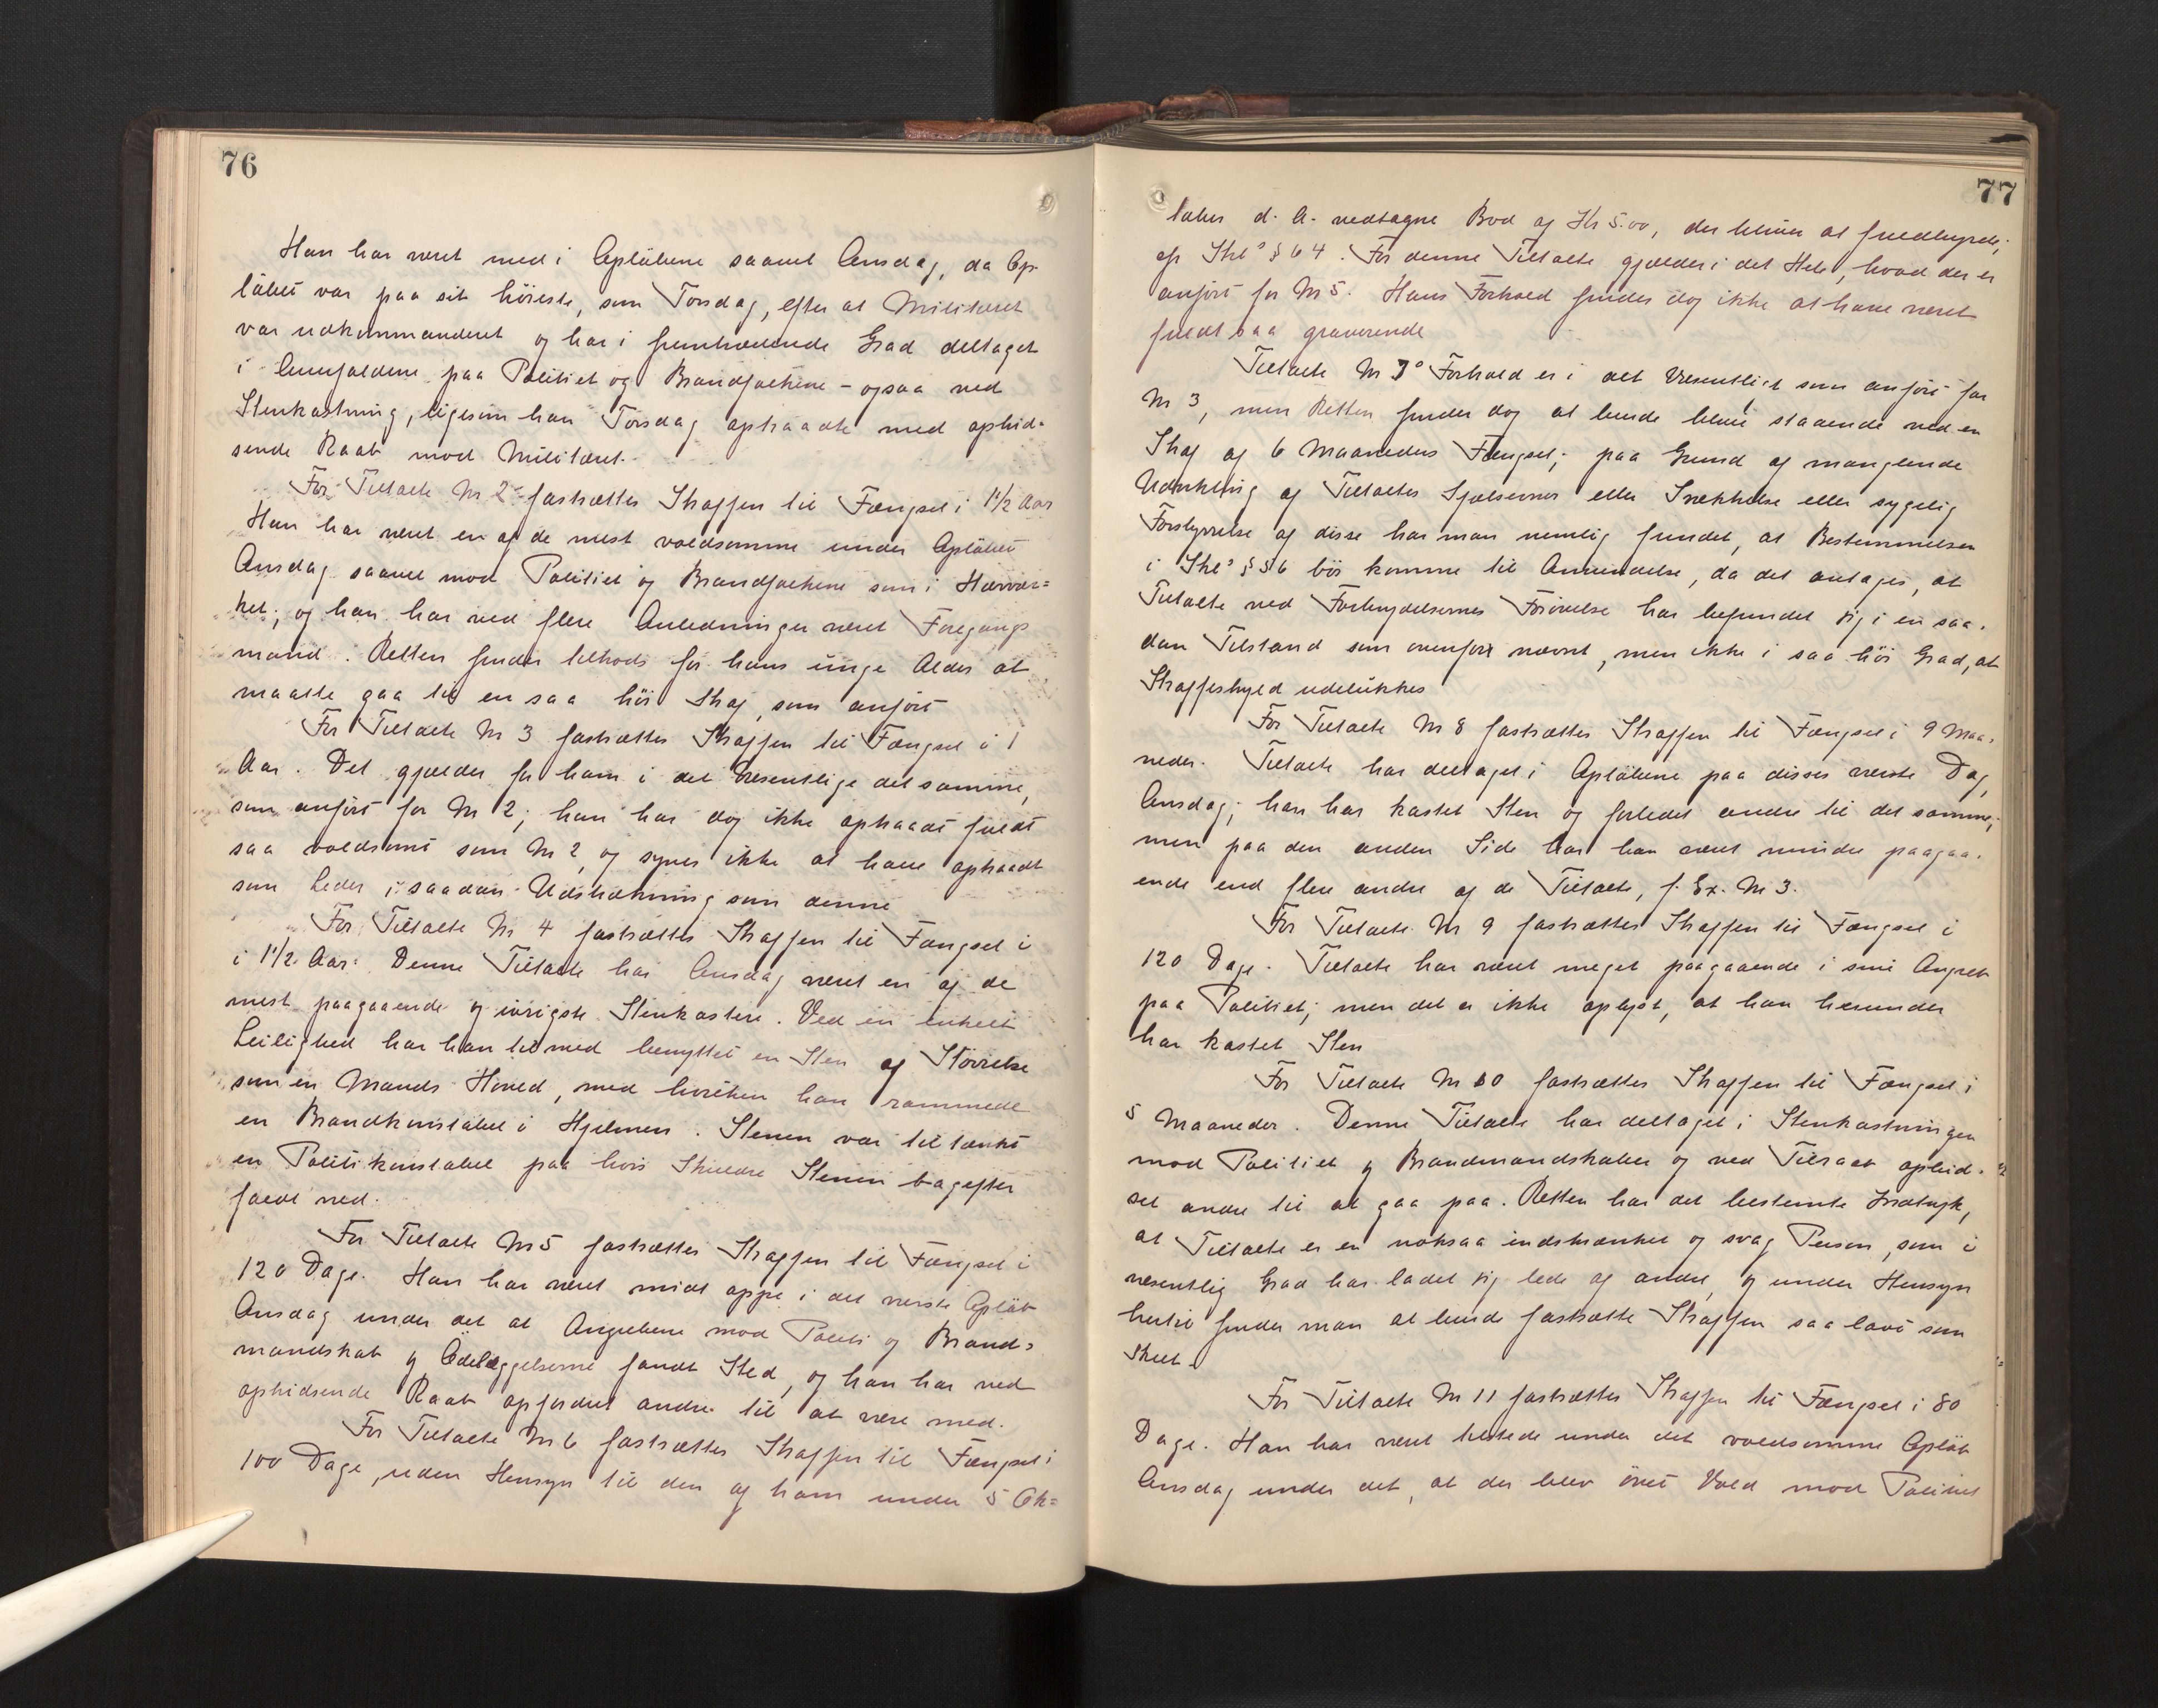 76
Han har været med i Opløbene saavel Onsdag, da Op-
løbet var paa sit høieste, som Torsdag, efter at Militæret
var udkommanderet og har i fremtrædende Grad deltaget
i Overfaldene paa Politiet og Brandfolkene - ogsaa ved
Stenkastning, ligesom han Torsdag optraadte med ophid-
sende Raab mod Militæret.
For Tiltalte Nr 2 fastsættes Straffen til Fængsel i 1 1/2 Aar
Han har været en af de mest voldsomme under Opløbet
Onsdag saavel mod Politiet og Brandfolkene som i Hærvær=
ket; og han har ved flere Anledninger været Foregangs
mand. Retten finder tiltrods for hans unge Alder at
maatte gaa til en saa høi Straf, som anført
For Tiltalte Nr 3 fastsættes Straffen til Fængsel i 1
Aar. Det gjælder for ham i det væsentlige det samme,
som anført for Nr 2; han har dog ikke optraadt fuldt
saa voldsomt som Nr 2 og synes ikke at have optraadt
som Leder i saadan Udstrækning som denne
For Tiltalte Nr 4 fastsættes Straffen til Fængsel i
i 1 1/2 Aar. Denne Tiltalte har Onsdag været en af de
mest paagaaende og ivrigste Stenkastere. Ved en enkelt
Leilighed har han tilmed benyttet en Sten af Størrelse
som en Mands Hoved, med hvilken han rammede
en Brandkonstabel i Hjelmen. Stenen var tiltænkt
en Politikonstabel paa hvis Skuldre Stenen bagefter
faldt ned.
For Tiltalte Nr 5 fastsættes Straffen til Fængsel i
120 Dage. Han har været midt oppe i det værste Opløb
Onsdag under det at Angrebene mod Politi og Brand=
mandskab og Ødelæggelserne fandt Sted, og han har ved
ophidsende Raab opfordret andre til at være med.
For Tiltalte Nr 6 fastsættes Straffen til Fængsel i
100 Dage, uden Hensyn til den af ham under 5 Ok=
77
tober d. A. vedtagne Bod af Kr 5.00, der bliver at fuldbyrde,
efr Strl's § 64. For denne Tiltalte gjælder i det Hele, hvad der er
anført for Nr 5. Hans Forhold findes dog ikke at have været
fuldt saa graverende
Tiltalte Nr 7's Forhold er i det Væsentligst som anført for
Nr 3, men Retten finder dog at burde blive staaende ved en
Straf af 6 Maaneders Fængsel; paa Grund af manglende
Udvikling af Tiltaltes Sjælsevner eller Svækkelse eller sygelig
Forstyrrelse af disse har man nemlig fundet, at Bestemmelsen
i Strl's § 56 bør komme til Anvendelse, da det antages, at
Tiltalte ved Forbrydelsernes Forøvelse har befundet sig i en saa-
dan Tilstand som ovenfor nævnt, men ikke i saa høi Grad, at
Straffeskyld udelukkes
For Tiltalte Nr 8 fastsættes Straffen til Fængsel i 9 Maa-
neder. Tiltalte har deltaget i Opløbene paa disses værste Dag,
Onsdag; han har kastet Sten og forledet andre til det samme;
men paa den anden Side har han været mindre paagaa-
ende end flere andre af de Tiltalte, f. Ex. Nr 3.
For Tiltalte Nr 9 fastsættes Straffen til Fængsel i
120 Dage. Tiltalte har været meget paagaaende i sine Angreb
paa Politiet; men det er ikke oplyst, at han herunder
har kastet Sten
For Tiltalte Nr 10 fastsættes Straffen til Fængsel i
5 Maaneder. Denne Tiltalte har deltaget i Stenkastningen
mod Politiet og Brandmandskabet og ved Tilraab ophid-
set andre til at gaa paa. Retten har det bestemte Indtryk,
at Tiltalte er en noksaa indskrænket og svag Person, som i
væsentlig Grad har ladet sig lede af andre, og under Hensyn
hertil finder man at burde fastsætte Straffen saa lavt som
skeet.
For Tiltalte Nr 11 fastsættes Straffen til Fængsel i 80
Dage. Han har været tilstede under det voldsomme Opløb
Onsdag under det, at der blev øvet Vold mod Politiet